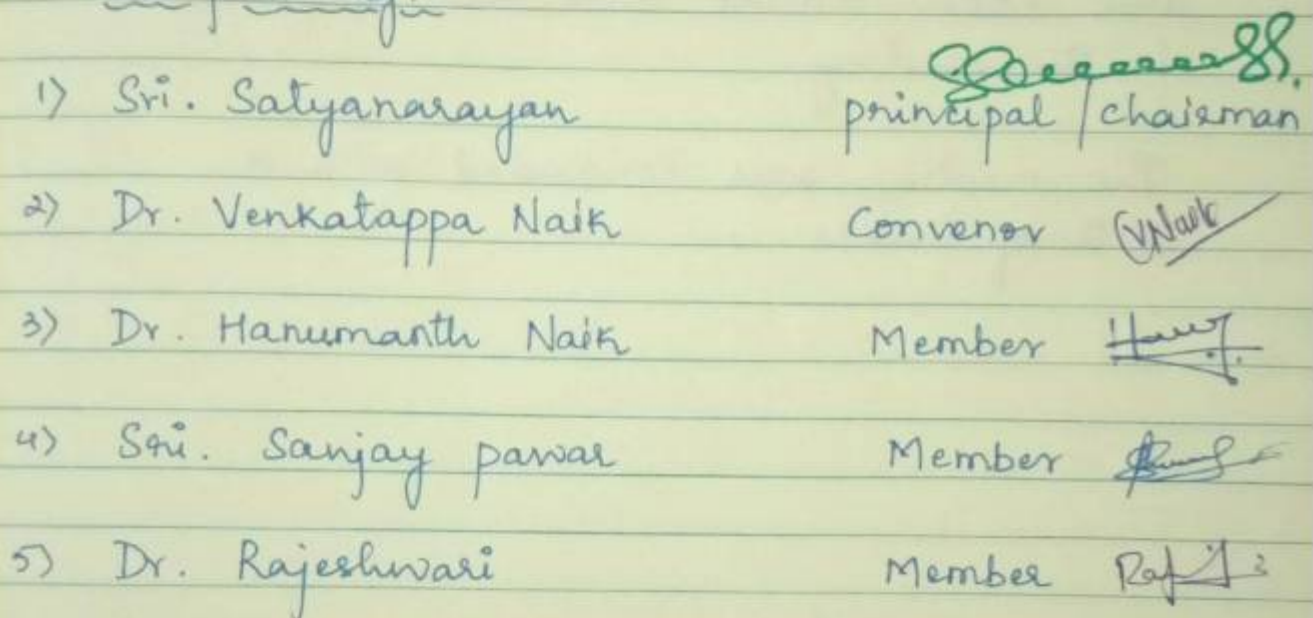 1) Sri. Satyanarayan principal / chairman
2) Dr. Venkatappa Naik Convenor VNaik
3) Dr. Hanumanth Naik Member
4) Sri. Sanjay pawar Member
5) Dr. Rajeshwari Member